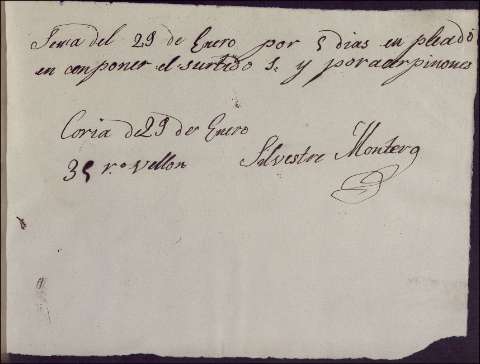 Sema del 29 de Enero por 5 dias en pleado
en conponer el surtido 1. y por acer pinones
Coria de 29 de Enero
35 r.s vellon Silvestre Montero